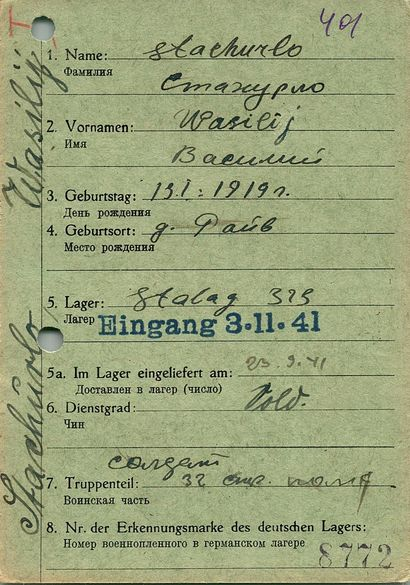 401
1. Name: Stachurlo
Фамилия
Стахурло
2. Vornamen: Wasilij
Имя
Василий
3. Geburtstag: 13.I.1919 г.
День рождения
4. Geburtsort: д.
Место рождения
5. Lager: Stalag 325
Лагер
Eingang 3.11.41
5a. Im Lager eingeliefert am: 23.9.41
Доставлен в лагер (число)
6. Dienstgrad: Sold.
Чин
солдат
7. Truppenteil: 32 стр. полк
Воинская часть
8. Nr. der Erkennungsmarke des deutschen Lagers:
Номер военнопленного в германском лагере
8772
Stachurlo Wasilij